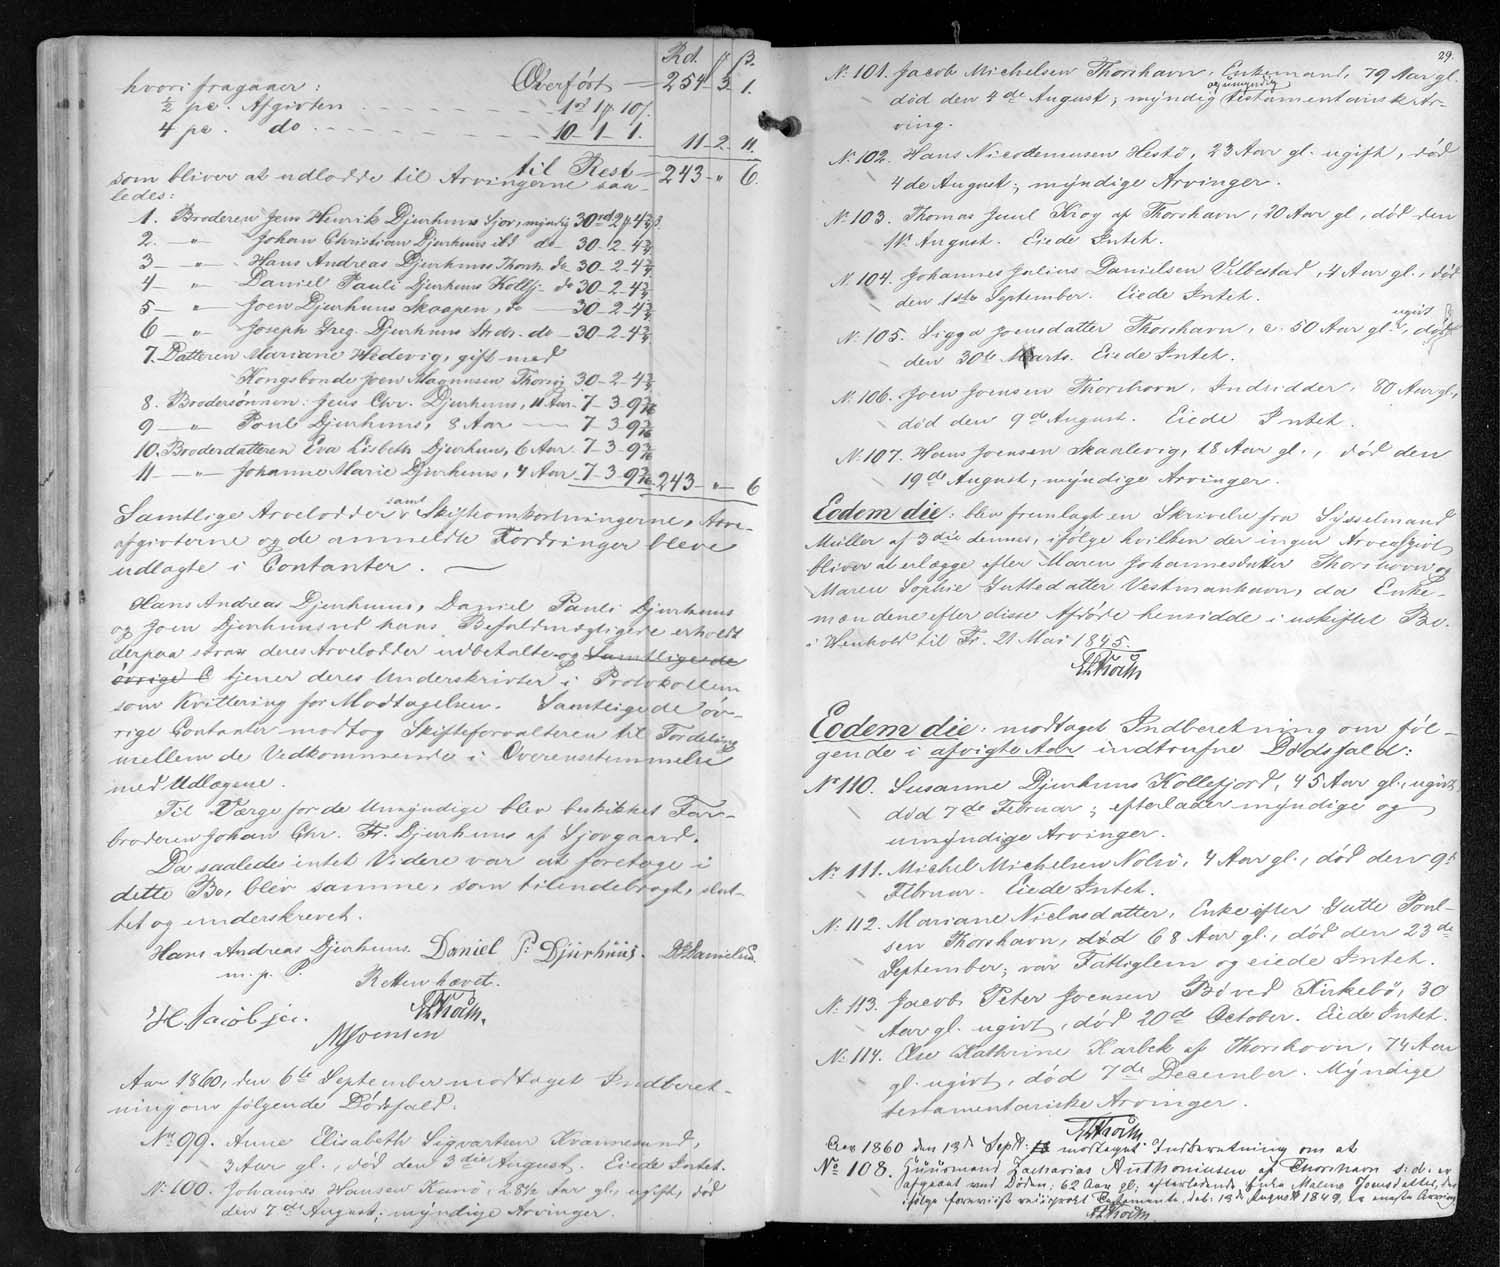 Rd. ß.
hvori fragaaer: Overført — 254 - 3 - 1.
½ pc. Afgivten 1rd 1 10
4 pc. do 10 - 1 - 1.
11 - 2 - 11.
til Rest — 243 - " - 6.
som bliver at udlodde til Arvingerne saa-
ledes:
1. Broderen Jens Henrik Djurhuus Sjov, myndig 30rd 2 4¾
2. — " — Johan Christian Djurhuus ibd do — 30 - 2 - 4¾
3 — " — Hans Andreas Djurhuus Thorsh. do 30 - 2 - 4¾
4 — " — Daniel Pauli Djurhuus Kollfj. do 30 - 2 - 4¾
5 — " — Joen Djurhuus Skaapen, do — 30 - 2 - 4¾
6 — " — Joseph Greg. Djurhuus Strds. do — 30 - 2 - 4¾
7. Datteren Mariane Hedevig, gift med
Kongsbonde Joen Magnussen Thorsh. 30 - 2 - 4¾
8. Brodersønnen: Jens Chr. Djurhuus, 11 Aar 7 - 3 - 9
9 — " — Poul Djurhuus, 8 Aar — 7 - 3 - 9
10. Broderdatteren Eva Lisbeth Djurhuus, 6 Aar 7 - 3 - 9
11 — " — Johanne Marie Djurhuus, 4 Aar 7 - 3 - 9 243 - " - 6
Samtlige Arvelodder samt Skifteomkostningerne, Arve-
afgivterne og de anmeldte Fordringer bleve
udlagte i Contanter. —
Hans Andreas Djurhuus, Daniel Pauli Djurhuus
og Joen Djurhuus ved hans Befuldmægtigede erholdt
derpaa strax deres Arvelodder udbetalte og Samtlige de
øvrige C tjener deres Underskrivter i Protokollen
som Kvittering for Modtagelsen. Samtlige de øv-
rige Contanter modtog Skifteforvalteren til Fordeling
mellem de Vedkommende i Overensstemmelse
med Udlægene.
Til Værge for de Umyndige blev beskikket Far-
broderen Johan Chr. Fr. Djurhuus af Sjovgaard.
Da saaledes intet Videre var at foretage i
dette Bo, blev samme, som tilendebragt, slut-
tet og underskrevet.
Hans Andreas Djurhuus. Daniel P: Djurhuus. D. Danielsen.
m. p. P. Retten hævet.
H. Jacobsen.
MJoensen
Aar 1860, den 6te September modtaget Indberet-
ning om følgende Dødsfald.
No 99. Anne Elisabeth Sigvartsen Kvannesund,
3 Aar gl., død den 3die August. Eiede Intet.
No 100. Johannes Hansen Kunø, 28½ Aar gl., ugift, død
den 7de August; myndige Arvinger.
29.
No 101. Jacob Michelsen Thorshavn, Enkemand, 79 Aar gl.
død den 4de August; myndig og umyndig testamentarisk Ar-
ving.
No 102. Hans Nicodemusen Hestø, 23 Aar gl. ugift, død
4de August; myndige Arvinger.
No 103. Thomas Juul Krog af Thorshavn, 20 Aar gl, død den
11te August. Eiede Intet.
No 104. Johannes Julius Danielsen Velbestad, 4 Aar gl., død
den 1ste September. Eiede Intet.
No 105. Sigga Joensdatter Thorshavn, c. 50 Aar gl. ugivt, død
den 30te Marts. Eiede Intet.
No 106. Joen Joensen Thorshavn, Indsidder, 80 Aar gl.,
død den 9de August. Eiede Intet.
No 107. Hans Joensen Skaalevig, 18 Aar gl., død den
19de August; myndige Arvinger.
Eodem die: blev fremlagt en Skrivelse fra Sysselmand
Müller af 3die dennes, ifølge hvilken der ingen Arveafgivt
bliver at erlægge efter Maren Johannesdatter Thorshavn og
Maren Sophie Guttesdatter Vestmanhavn, da Enke-
mændene efter disse Afdøde hensidde i uskiftet Bo.
i Henhold til Fr. 21 Mai 1845.
Eodem die: modtaget Indberetning om føl-
gende i afvigte Aar indtrufne Dødsfald:
No 110. Susanne Djurhuus Kollefjord, 45 Aar gl., ugivt,
død 7de Februar; efterlader myndige og
umyndige Arvinger.
No 111. Michel Michelsen Nolsø, 4 Aar gl., død den 9de
Februar. Eiede Intet.
No 112. Mariane Niclasdatter, Enke efter Gutte Poul-
sen Thorshavn, død 68 Aar gl., død den 23de
September; var Fattiglem og eiede Intet.
No 113. Jacob Peter Joensen Bø ved Kirkebø, 30
Aar gl. ugivt, død 20de October. Eiede Intet.
No 114. Else Kathrine Karbek af Thorshavn, 74 Aar
gl. ugivt, død 7de December. Myndige
testamentariske Arvinger.
Aar 1860 den 13de Septbr: modtaget Indberetning om at
No 108. Huusmand Zacharias Anthoniusen af Thorshavn s: d: er
afgaaet ved Døden; 62 Aar gl; efterladende Enke Malene Joensdatter, der
ifølge foreviist reciprokt Testamente, dat: 13de August 1849, er eneste Arving